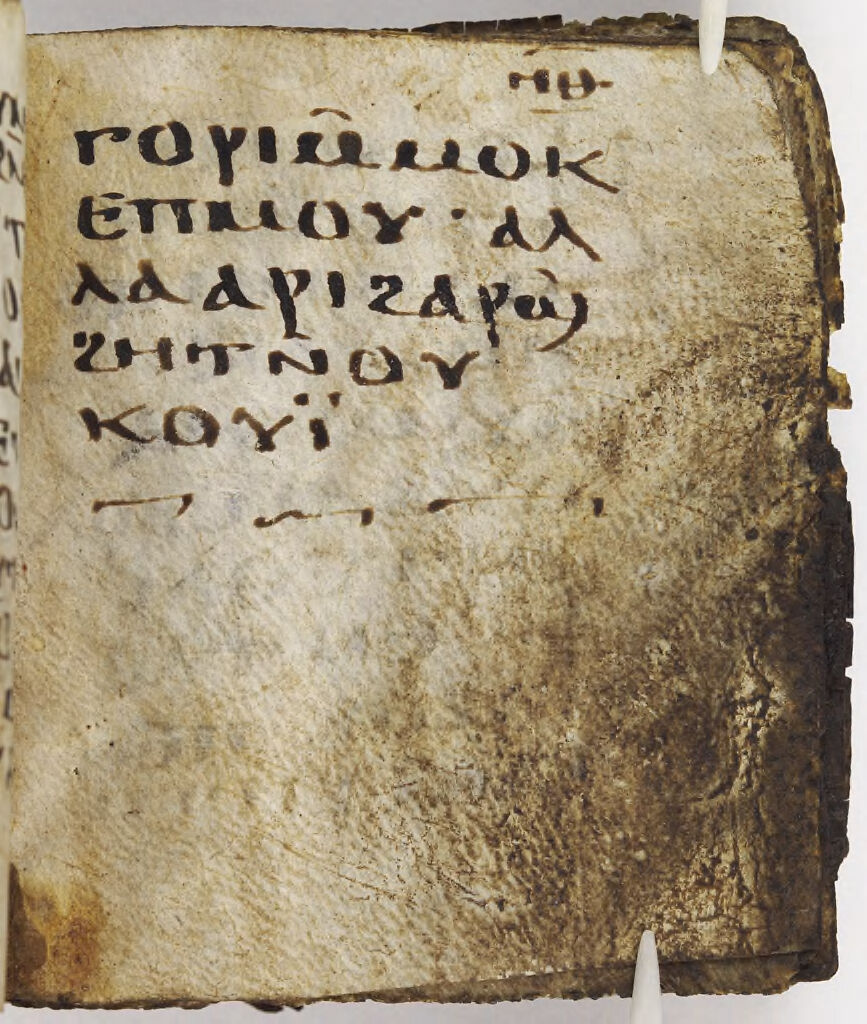 ⲛⲑ
ⲅⲟⲣⲓⲙ̂ⲙⲟⲕ
ⲉⲡⲙⲟⲩ · ⲁⲗ
ⲗⲁ ⲁⲣⲓϩⲁⲣϣ̀
ϩⲏⲧⲛ̄ⲟⲩ
ⲕⲟⲩⲓ̈